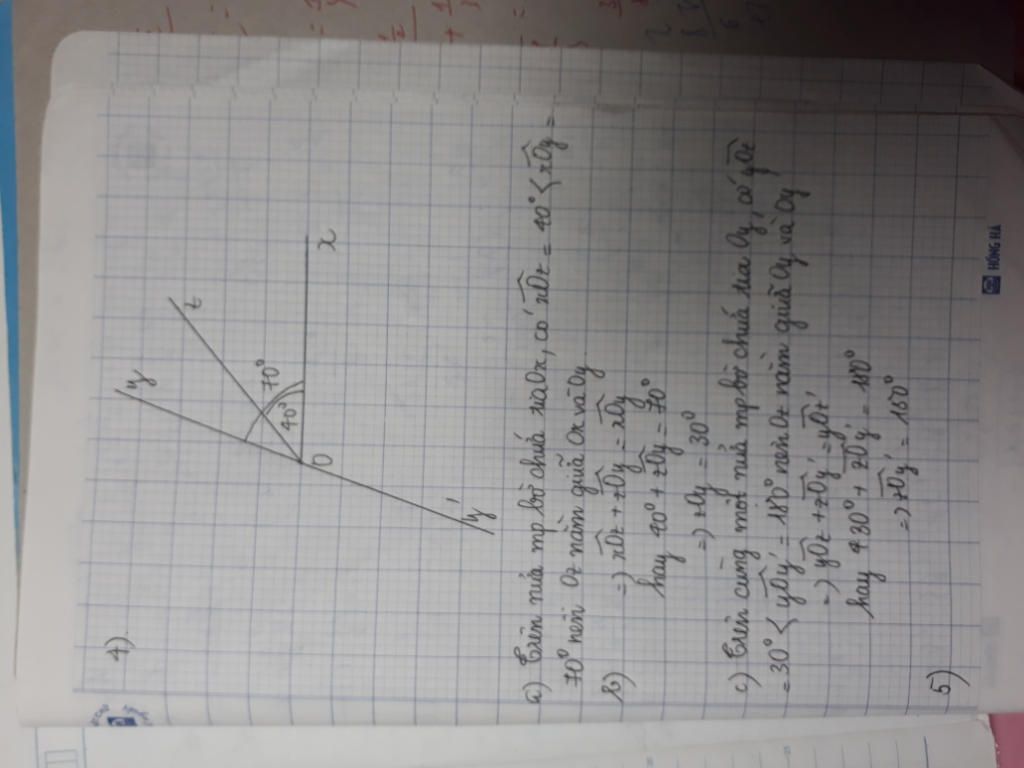 4)
y
z
70°
40°
O
x
y'
a) Trên nửa mp bờ chứa tia Ox, có xOz = 40° < xOy =
70° nên Oz nằm giữa Ox và Oy
b) => xOz + zOy = xOy
hay 40° + zOy = 70°
=> zOy = 30°
c) Trên cùng một nửa mp bờ chứa tia Oy, có yOz
= 30° < yOy' = 180° nên Oz nằm giữa Oy và Oy
=> yOz + zOy' = yOz'
hay 30° + zOy' = 180°
=> zOy' = 150°
5)
HỒNG HÀ